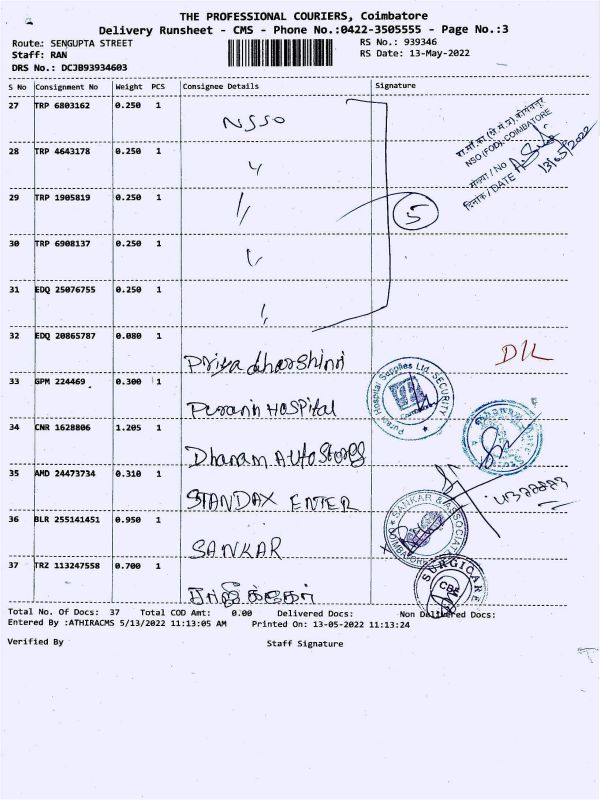 THE PROFESSIONAL COURIERS, Coimbatore
Delivery Runsheet - CMS - Phone No.:0422-3505555 - Page No.:3
Route: SENGUPTA STREET RS No.: 939346
Staff: RAN RS Date: 13-May-2022
DRS No.: DCJB93934603
S No Consignment No Weight PCS Consignee Details Signature
27 TRP 6803162 0.250 1 NSSO
NSO (FOD), COIMBATORE
संख्या / No
दिनांक / DATE 13/05/2022
28 TRP 4643178 0.250 1 "
29 TRP 1905819 0.250 1 "
5
30 TRP 6908137 0.250 1 "
31 EDQ 25076755 0.250 1 "
32 EDQ 20865787 0.080 1 Priya dharshini D/L
33 GPM 224469 0.300 1 Purani Hospital
Purani Hospital Supplies Ltd. SECURITY
34 CNR 1628806 1.205 1 Dhanam Auto Stores
35 AMD 24473734 0.310 1 STANDAX ENTER
36 BLR 255141451 0.950 1 SANKAR
SANKAR & ASSOCIATES COIMBATORE
37 TRZ 113247558 0.700 1
SURGICARE
CBE
Total No. Of Docs: 37 Total COD Amt: 0.00 Delivered Docs: Non Delivered Docs:
Entered By :ATHIRACMS 5/13/2022 11:13:05 AM Printed On: 13-05-2022 11:13:24
Verified By Staff Signature